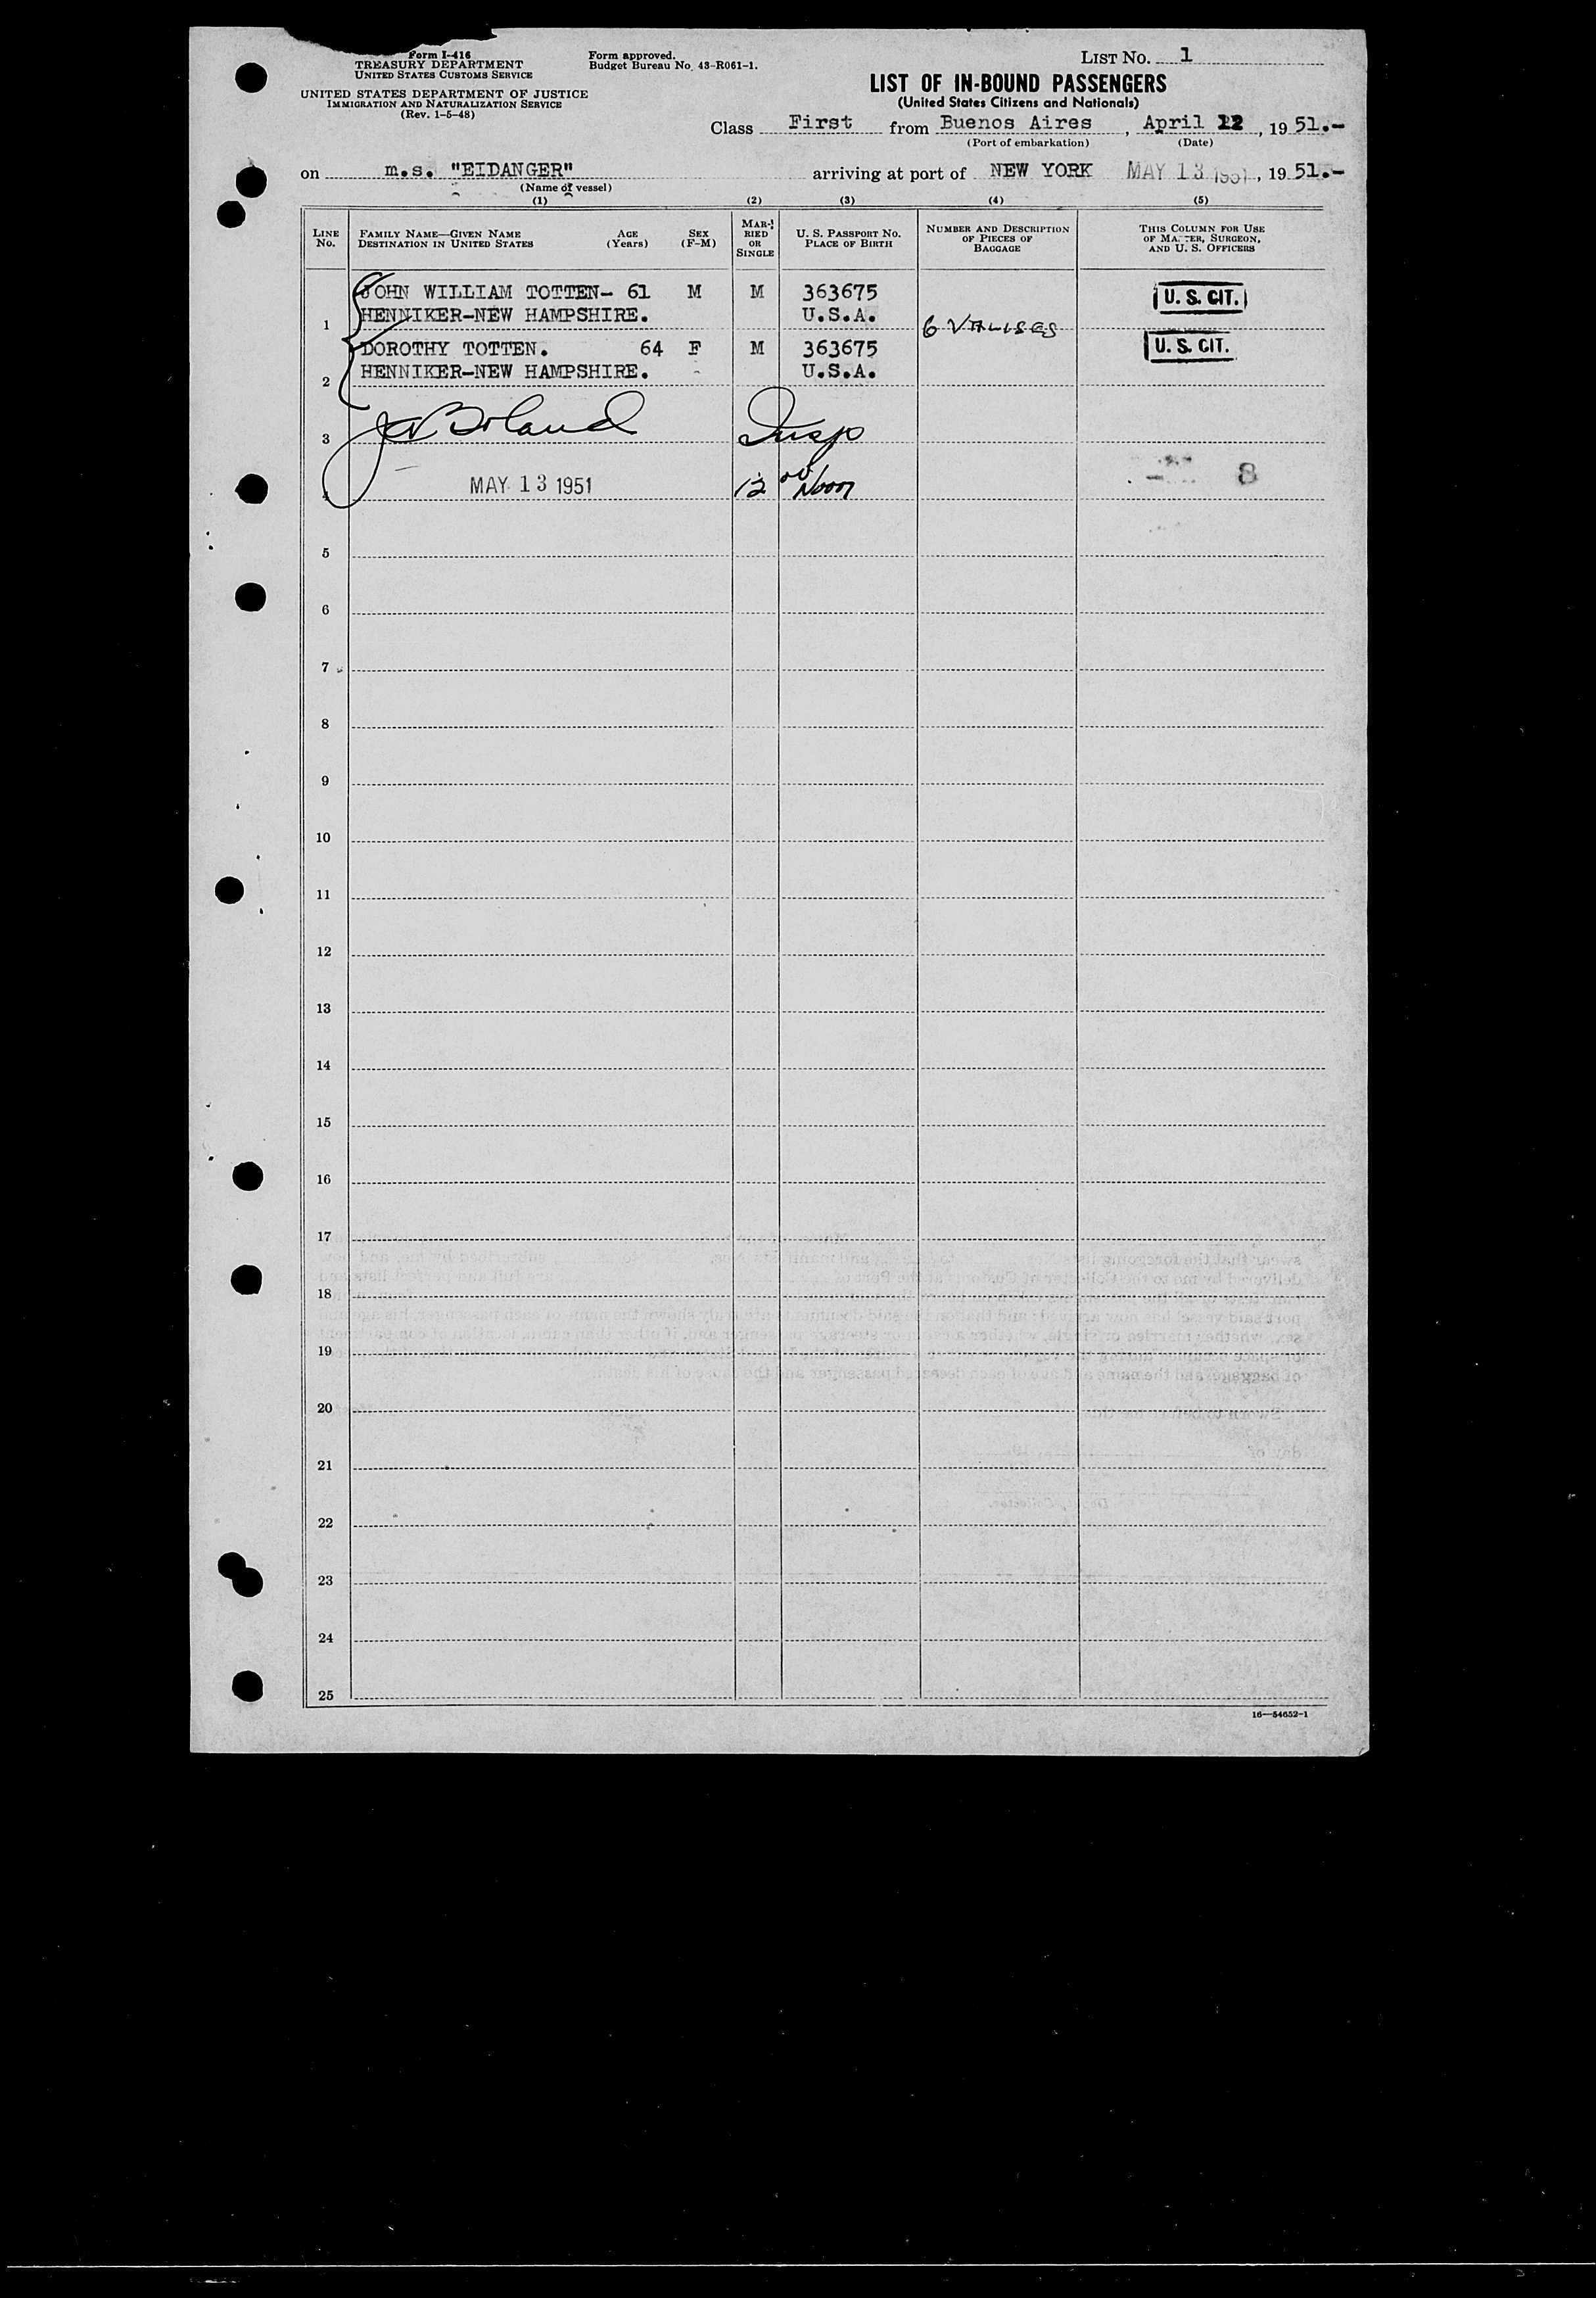 Form I-416
TREASURY DEPARTMENT
UNITED STATES CUSTOMS SERVICE
UNITED STATES DEPARTMENT OF JUSTICE
IMMIGRATION AND NATURALIZATION SERVICE
(Rev. 1-5-48)
Form approved.
Budget Bureau No. 43-R061-1.
LIST No. 1
LIST OF IN-BOUND PASSENGERS
(United States Citizens and Nationals)
Class First from Buenos Aires, April 12, 1951.-
(Port of embarkation) (Date)
on m.s. "EIDANGER" arriving at port of NEW YORK MAY 13 1951, 1951.-
(Name of vessel)
(1) (2) (3) (4) (5)
LINE No.
FAMILY NAME—GIVEN NAME
DESTINATION IN UNITED STATES
AGE (Years)
SEX (F-M)
MARRIED OR SINGLE
U. S. PASSPORT No.
PLACE OF BIRTH
NUMBER AND DESCRIPTION
OF PIECES OF
BAGGAGE
THIS COLUMN FOR USE
OF MASTER, SURGEON,
AND U. S. OFFICERS
JOHN WILLIAM TOTTEN- 61 M M 363675 U. S. CIT.
1 HENNIKER-NEW HAMPSHIRE. U.S.A. 6 VALISES
DOROTHY TOTTEN. 64 F M 363675 U. S. CIT.
2 HENNIKER-NEW HAMPSHIRE. U.S.A.
3 Boland Insp
4 MAY 13 1951 12 00 Noon 8
5
6
7
8
9
10
11
12
13
14
15
16
17
18
19
20
21
22
23
24
25
16—54652-1